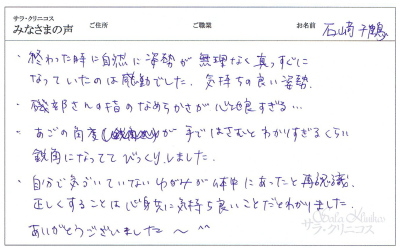 サラ・クリニコス
みなさまの声 ご住所 ご職業 お名前 石山奇 千鶴
・終わった時に自然に姿勢が無理なく真っすぐに
なっていたのは感動でした。気持ちの良い姿勢。
・磯部さんの指のなめらかさが心地良すぎる…
・あごの角度が手ではさむとわかりすぎるくらい
鋭角になっててびっくりしました。
・自分で気づいていないゆがみが体中にあったと再認識。
正しくすることは心身共に気持ち良いことだとわかりました。
ありがとうございました〜 ^^
Sala Klinikos
サラ・クリニコス